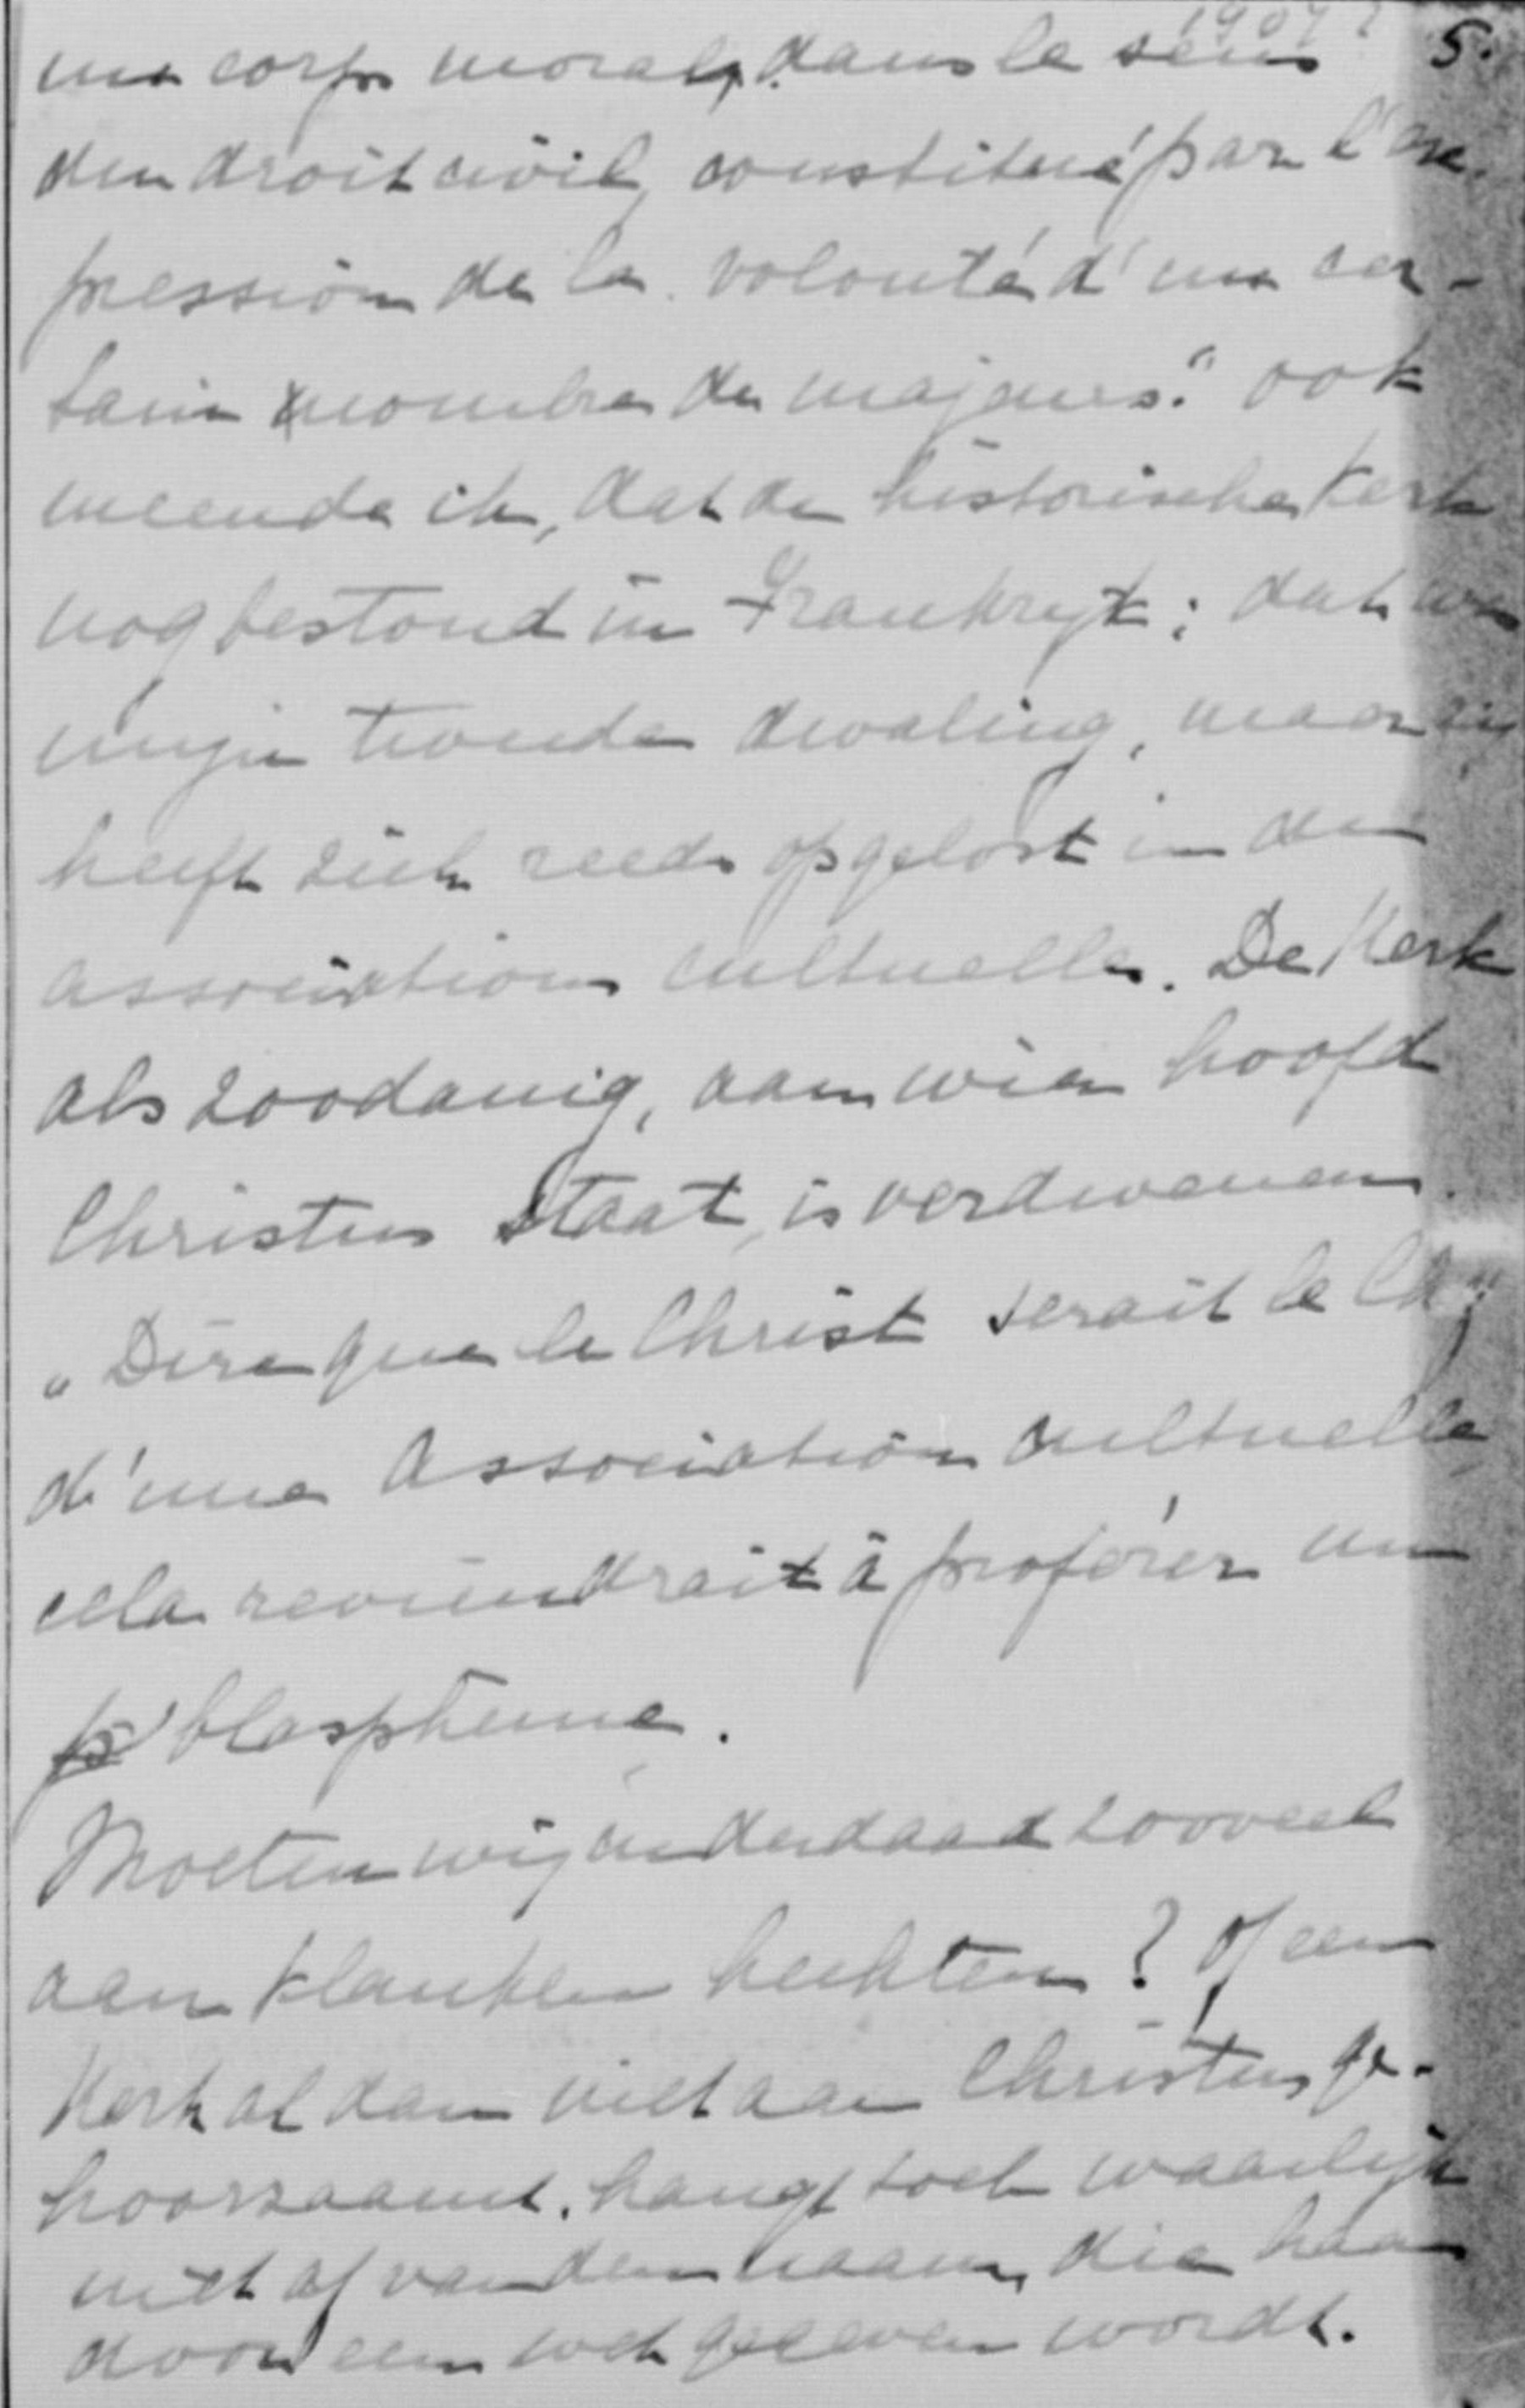 1907? 5.
un corps moral, dans le sens
du droit civil, constitué par l'ex-
pression de la volonté d'un cer-
tain nombre de majeurs." ook
meende ik, dat de historische Kerk
nog bestond in Frankrijk; dat was
mijn tweede dwaling, maar zij
heeft zich reeds opgelost in de
association cultuelle. De Kerk
als zoodanig, aan wier hoofd
Christus staat, is verdwenen.
„Dire que le Christ serait le
d'une Association cultuelle,
cela reviendrait à proférer un
blasphème.
Moeten wij inderdaad zooveel
aan klanken hechten? Of een
Kerk al dan niet aan Christus ge-
hoorzaamt, hangt toch waarlijk
niet af van den naam, die haar
door een wet gegeven wordt.